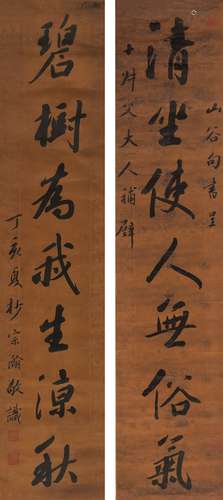 山谷句書呈
十叔父大人補壁
清坐使人無俗氣
碧樹為我生涼秋
丁亥夏杪宗瀚敬識